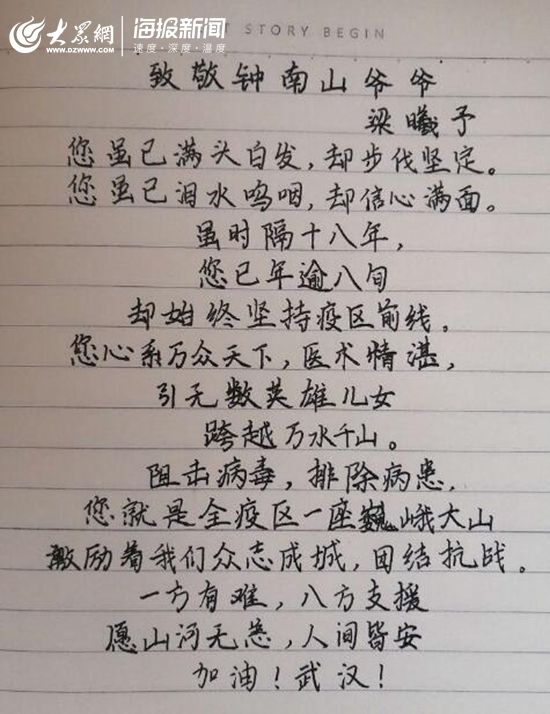 大众網 海报新闻
www.dzwww.com 速度·深度·温度
STORY BEGIN
致敬钟南山爷爷
梁曦予
您虽已满头白发，却步伐坚定。
您虽已泪水呜咽，却信心满面。
虽时隔十八年，
您已年逾八旬
却始终坚持疫区前线。
您心系万众天下，医术精湛，
引无数英雄儿女
跨越万水千山。
阻击病毒，排除病患，
您就是全疫区一座巍峨大山
激励着我们众志成城，团结抗战。
一方有难，八方支援
愿山河无恙，人间皆安
加油！武汉！